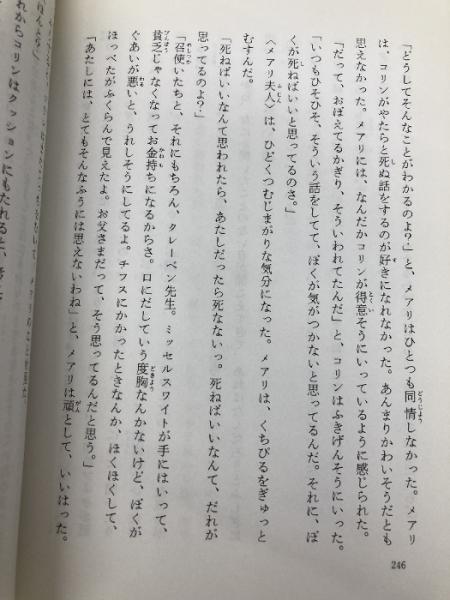 「どうしてそんなことがわかるのよ？」と、メアリはひとつも同情しなかった。メアリ
は、コリンがやたらと死ぬ話をするのが好きになれなかった。あんまりかわいそうだとも
思えなかった。メアリには、なんだかコリンが得意そうにいっているように感じられた。
「だって、おぼえてるかぎり、そういわれてたんだ」と、コリンはふきげんそうにいった。
「いつもひそひそ、そういう話をしてて、ぼくが気がつかないと思ってるんだ。それに、ぼ
くが死ねばいいと思ってるのさ。」
〈メアリ夫人〉は、ひどくつむじまがりな気分になった。メアリは、くちびるをぎゅっと
むすんだ。
「死ねばいいなんて思われたら、あたしだったら死なないっ。死ねばいいなんて、だれが
思ってるのよ？」
「召使いたちと、それにもちろん、クレーベン先生。ミッセルスワイトが手にはいって、
貧乏じゃなくなってお金持ちになるからさ。口にだしていう度胸なんかないけど、ぼくが
ぐあいが悪いと、うれしそうにしてるよ。チフスにかかったときなんか、ほくほくして、
ほっぺたがふくらんで見えたよ。お父さまだって、そう思ってるんだと思う。」
「あたしには、とてもそんなふうには思えないわね」と、メアリは頑として、いいはった。
246
れからコリンはクッションにもたれると、